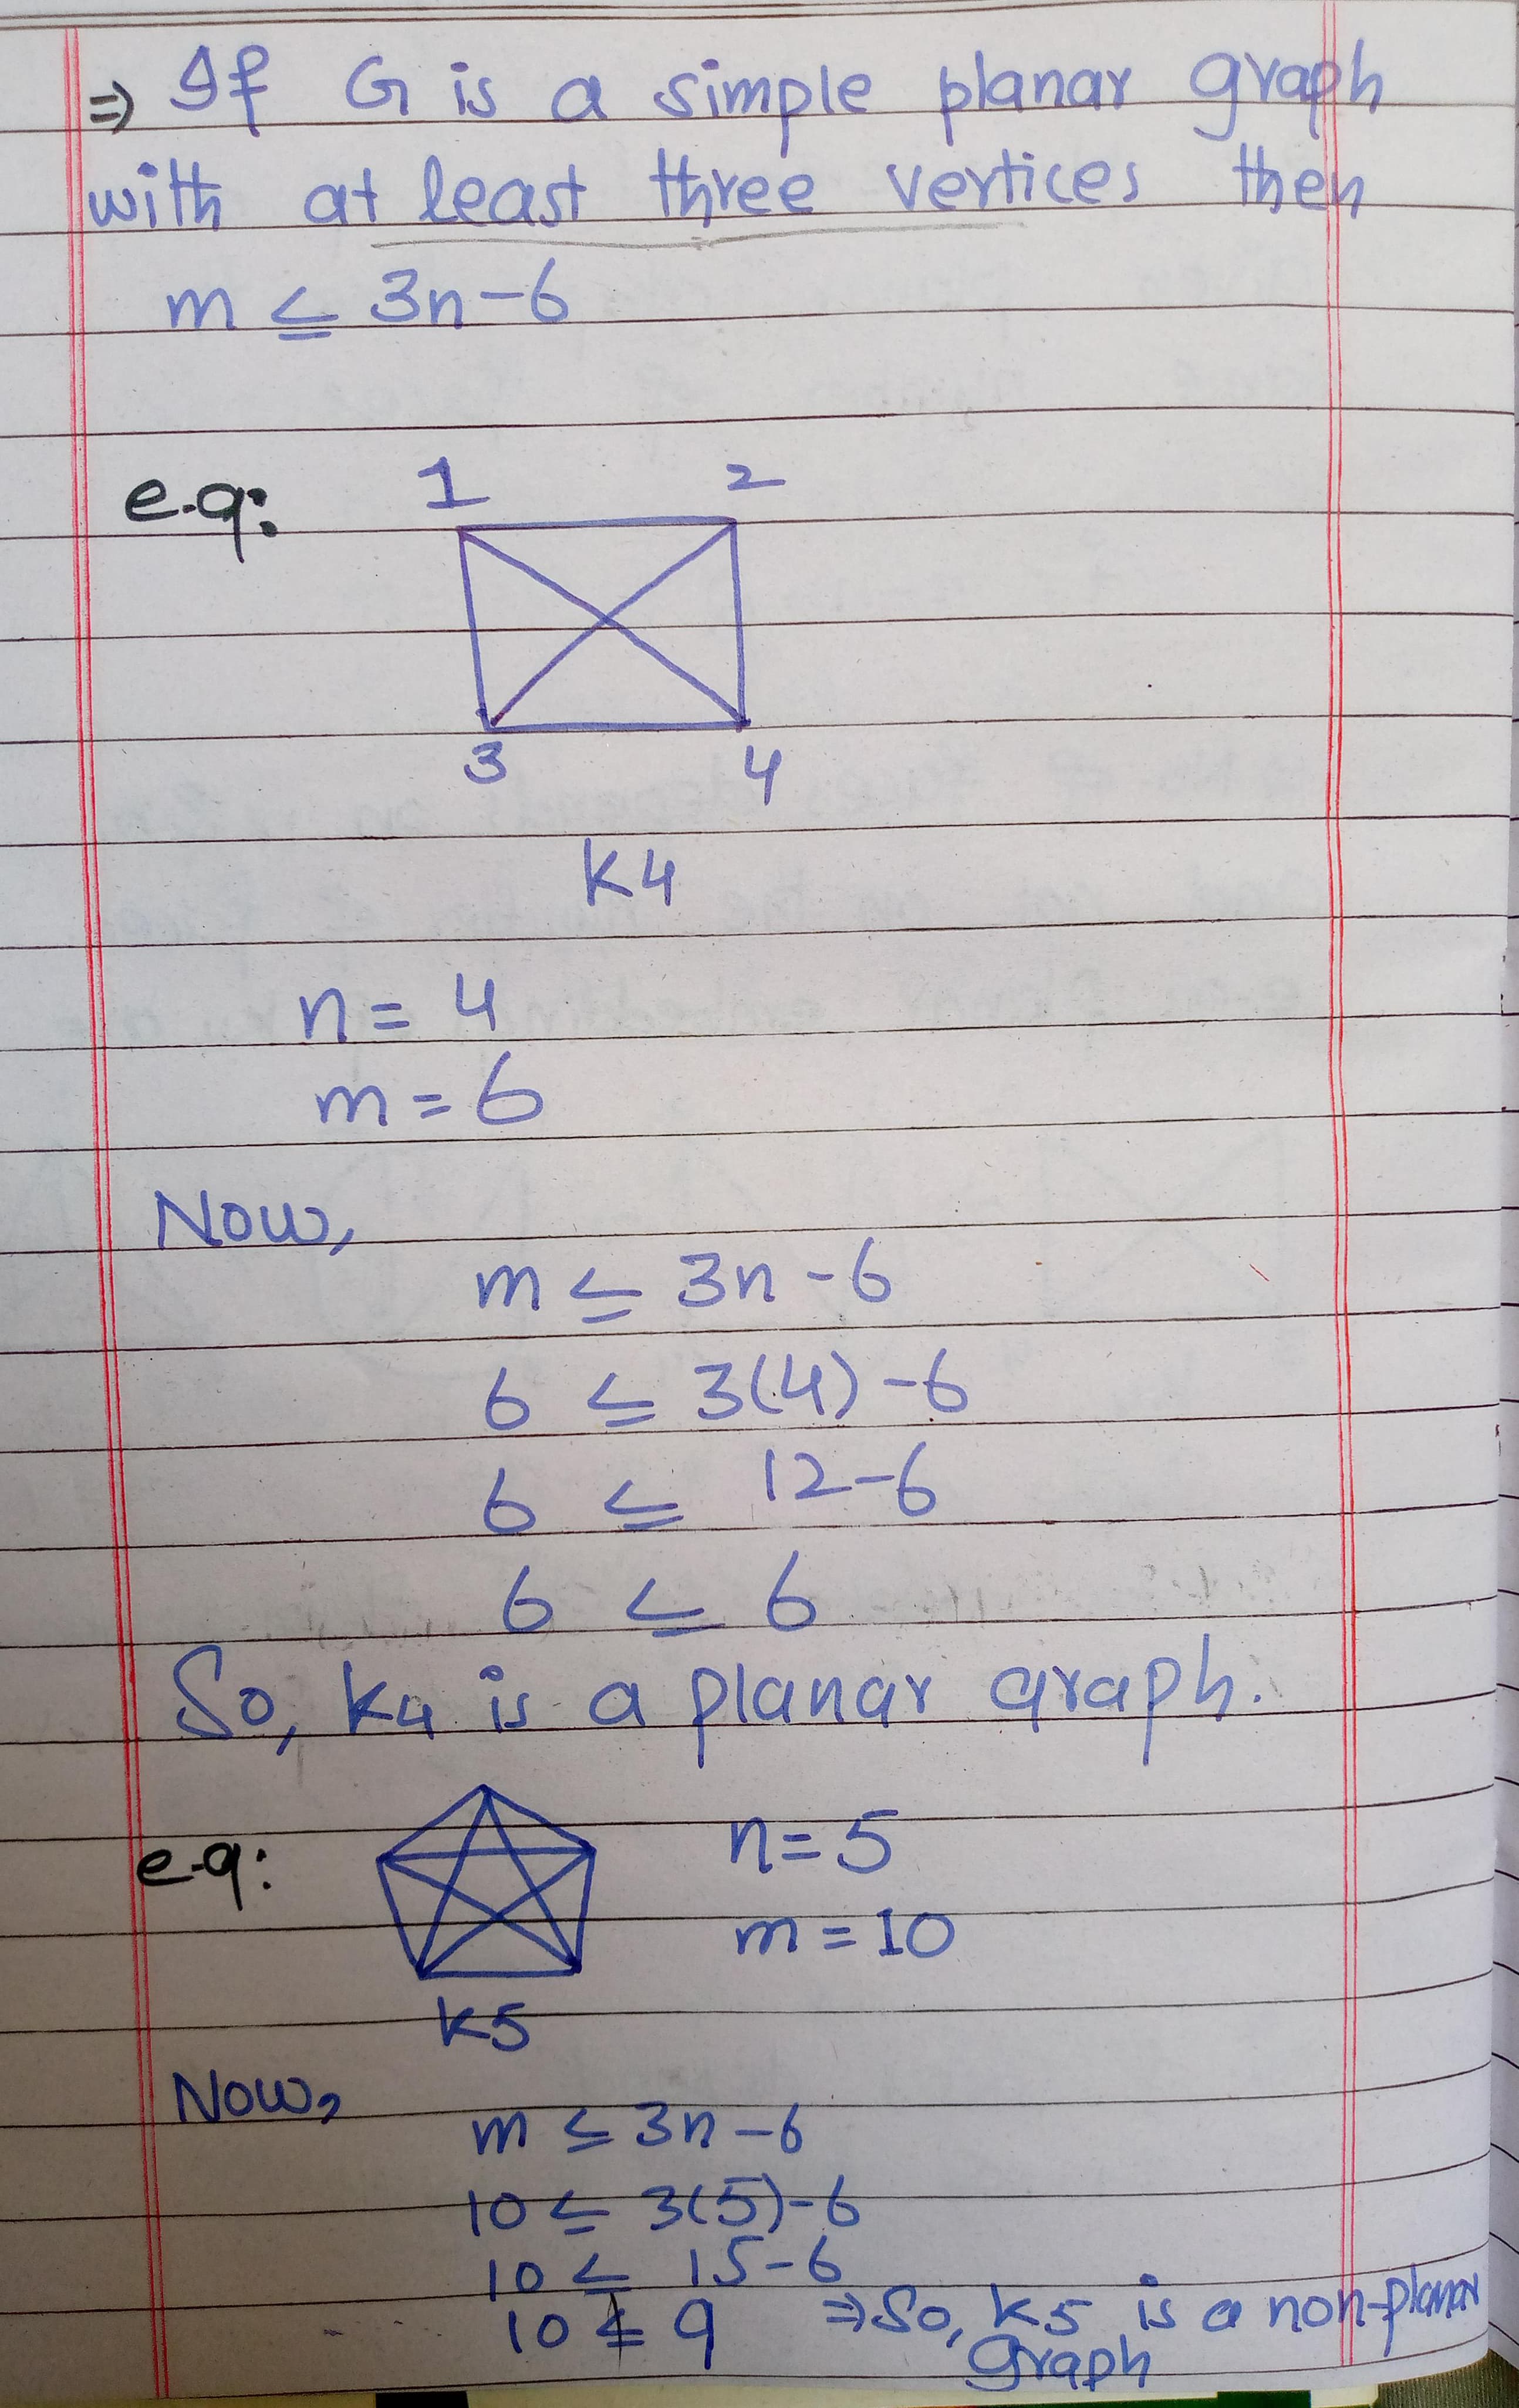 ⇒ If G is a simple planar graph
with at least three vertices then
m ≤ 3n-6
e.g:
1 2
3 4
K4
n = 4
m = 6
Now,
m ≤ 3n-6
6 ≤ 3(4)-6
6 ≤ 12-6
6 ≤ 6
So, K4 is a planar graph.
e.g:
n=5
m=10
K5
Now,
m ≤ 3n-6
10 ≤ 3(5)-6
10 ≤ 15-6
10 ≰ 9 ⇒ So, K5 is a non-planar
graph